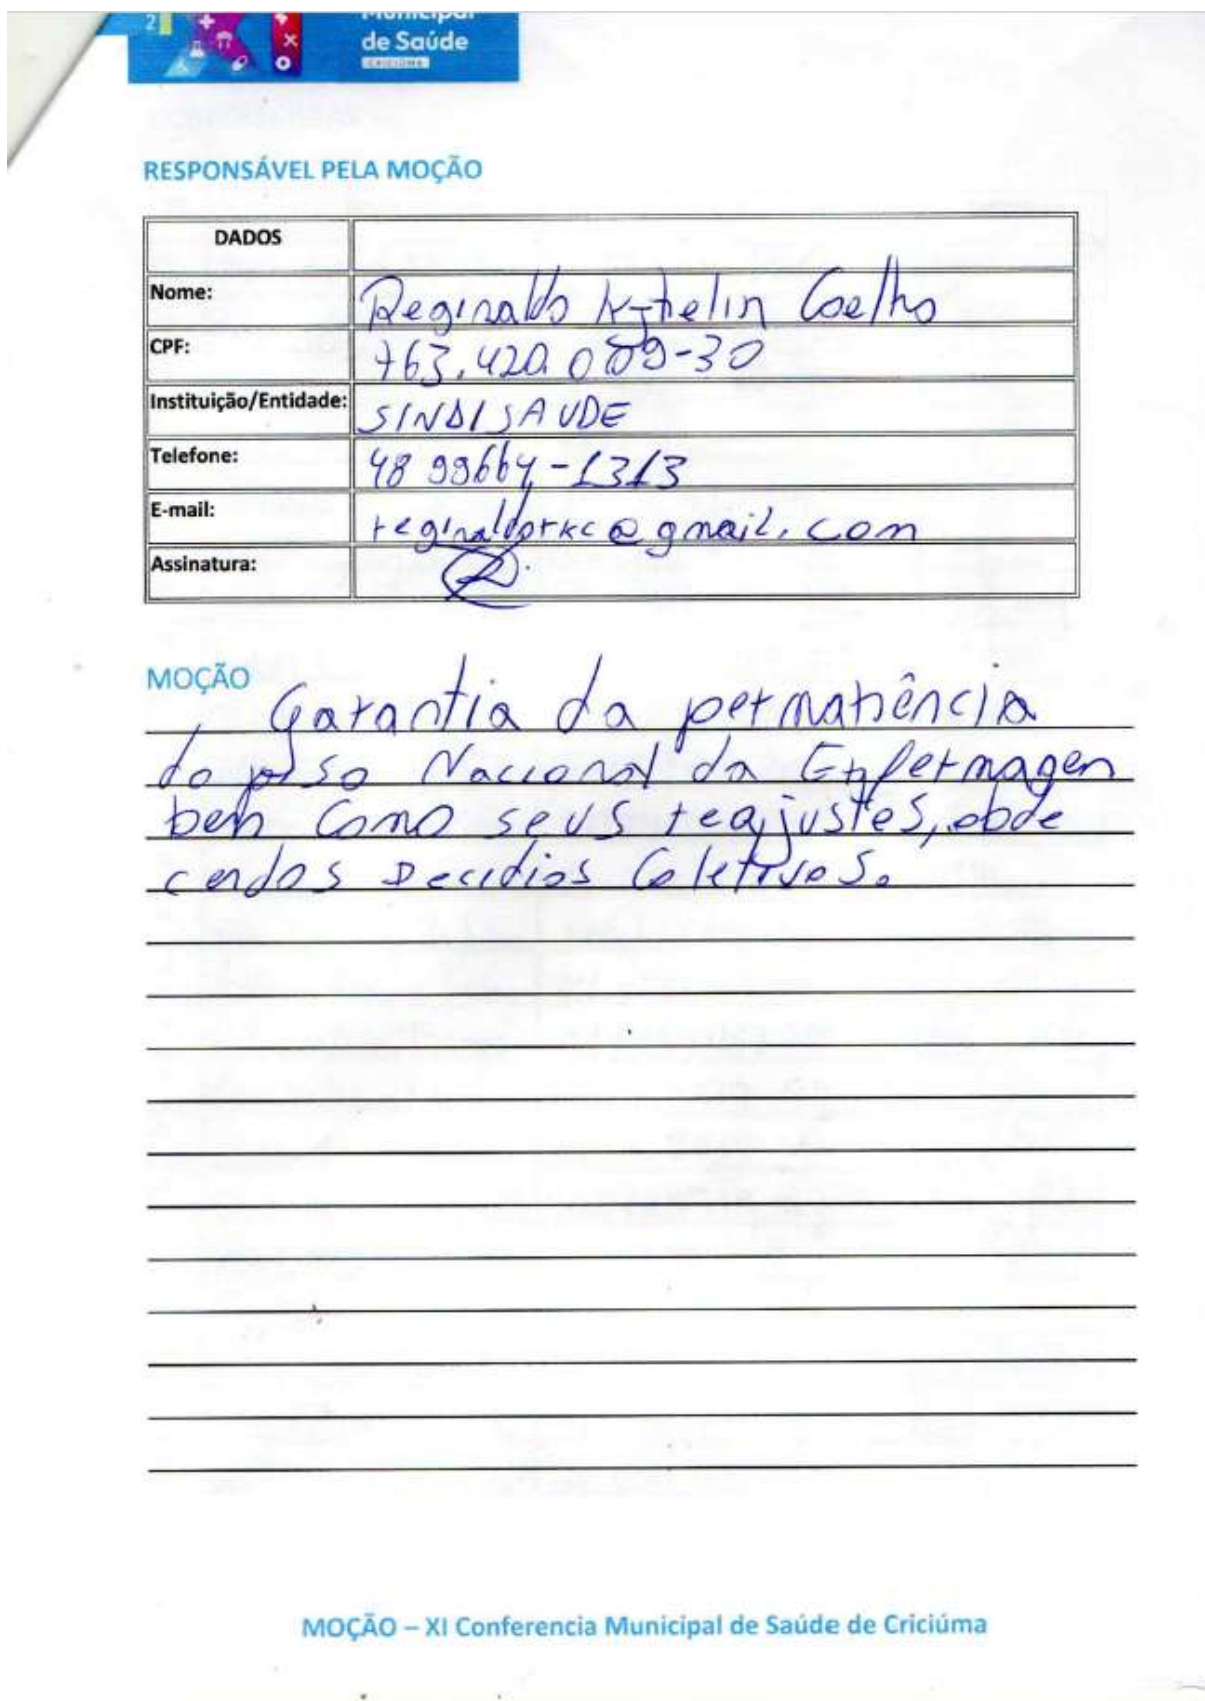 2
Municipal
de Saúde
CRICIÚMA
RESPONSÁVEL PELA MOÇÃO
DADOS
Nome: Reginaldo Coelho
CPF: 763.420.009-30
Instituição/Entidade: SINDISAUDE
Telefone: 48 99664-1313
E-mail: reginaldorkc@gmail.com
Assinatura:
MOÇÃO
Garantia da permanência
do piso Nacional da Enfermagen
bem Como seus reajustes, obde
cendos Decidios Coletivos.
MOÇÃO – XI Conferencia Municipal de Saúde de Criciúma